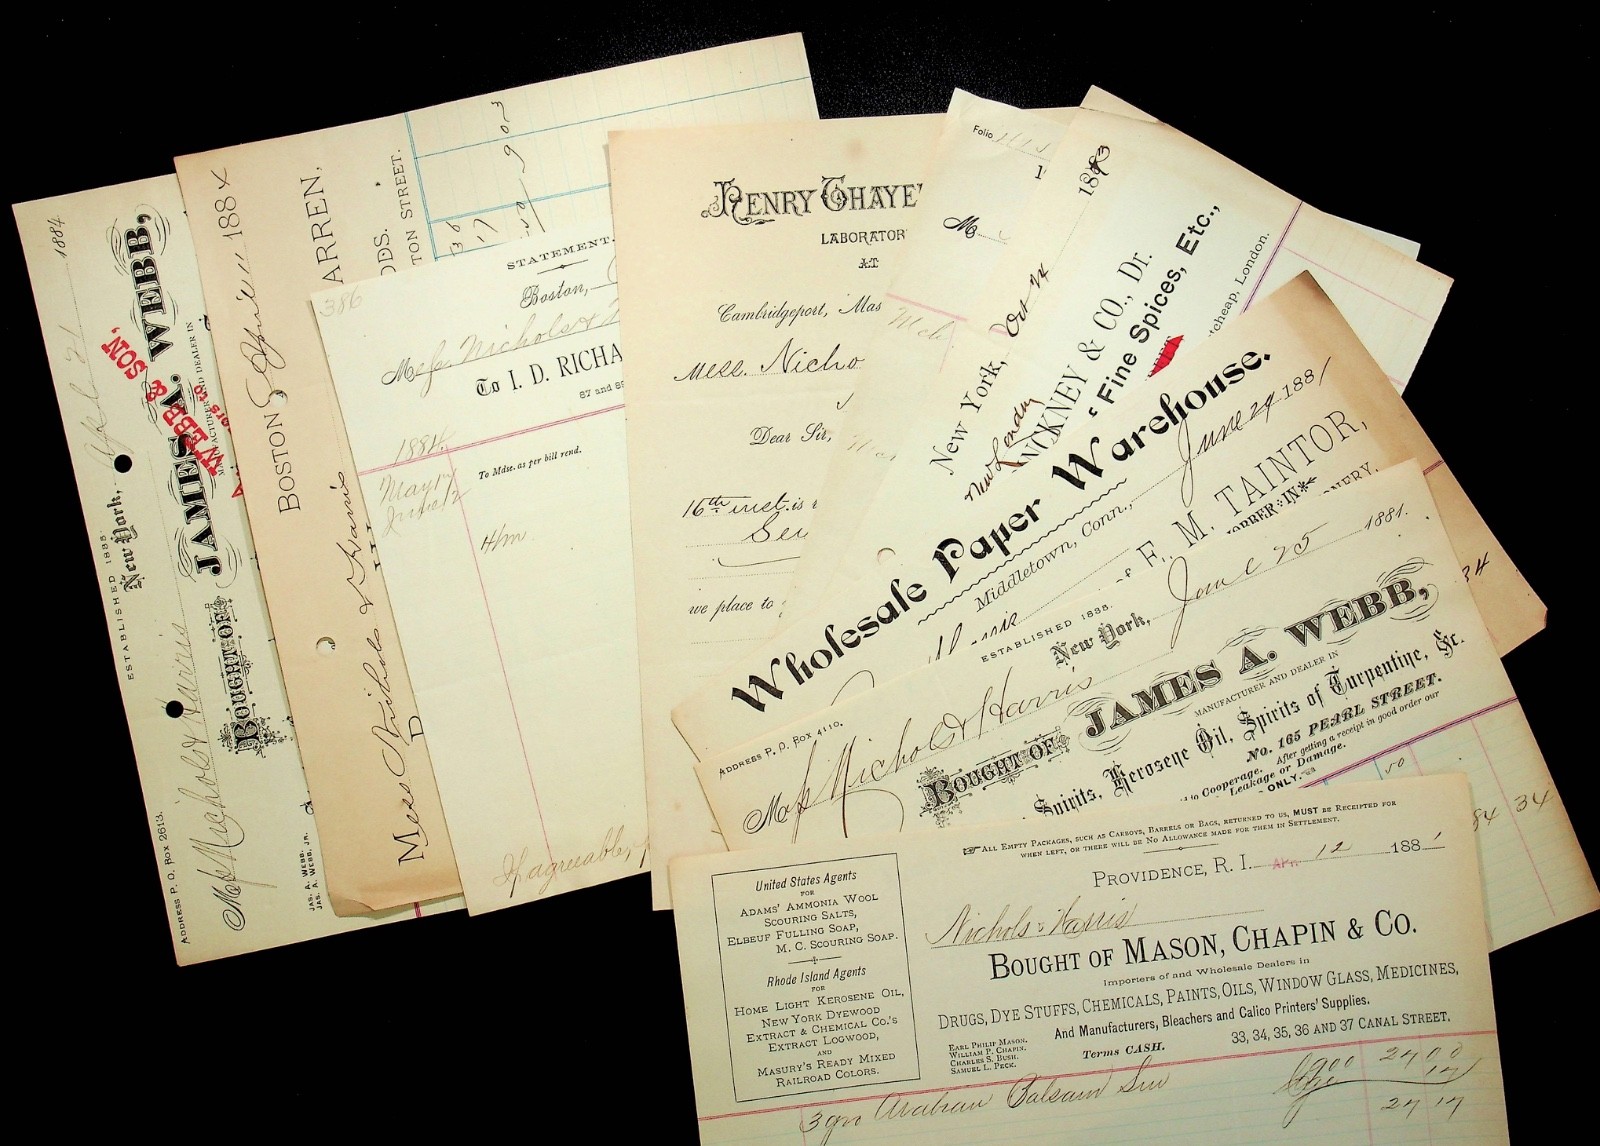 1884
ESTABLISHED 1835.
New York,
WEBB & SON,
JAMES A. WEBB,
MANUFACTURER AND DEALER IN
BOUGHT OF
Nichols & Harris
ADDRESS P. O. BOX 2613.
JAS. A. WEBB.
JAS. A. WEBB, JR.
BOSTON 188
ARREN,
ODS.
TON STREET.
Mess Nichols & Harris
D
17
386
STATEMENT.
Boston,
Nichols &
To I. D. RICHA
87 and 89
1884
May 17
To Mdse. as per bill rend.
4/m
HENRY THAYE
LABORATOR
AT
Cambridgeport, Mas
Mess. Nicho
Dear Sir,
16th inst. is
we place to
Folio
1
M
1883
New York, Oct 24
New London
KNICKNEY & CO., Dr.
Fine Spices, Etc.,
tcheap, London.
Wholesale Paper Warehouse.
Middletown, Conn., June 29 1881
F. M. TAINTOR,
JOBBER IN
ONERY,
34
ESTABLISHED 1835.
New York, June 25 1881.
ADDRESS P. O. BOX 4110.
Nichols & Harris
BOUGHT OF JAMES A. WEBB,
MANUFACTURER AND DEALER IN
Spirits, Kerosene Oil, Spirits of Turpentine, &c.
No. 165 PEARL STREET.
Cooperage. After getting a receipt in good order our
Leakage or Damage.
ONLY.
50
84 34
ALL EMPTY PACKAGES, SUCH AS CARBOYS, BARRELS OR BAGS, RETURNED TO US, MUST BE RECEIPTED FOR
WHEN LEFT, OR THERE WILL BE NO ALLOWANCE MADE FOR THEM IN SETTLEMENT.
PROVIDENCE, R. I. APR. 12 1881
Nichols & Harris
BOUGHT OF MASON, CHAPIN & CO.
Importers of and Wholesale Dealers in
DRUGS, DYE STUFFS, CHEMICALS, PAINTS, OILS, WINDOW GLASS, MEDICINES,
And Manufacturers, Bleachers and Calico Printers' Supplies.
EARL PHILIP MASON.
WILLIAM P. CHAPIN.
CHARLES S. BUSH.
SAMUEL L. PECK.
Terms CASH.
33, 34, 35, 36 AND 37 CANAL STREET.
United States Agents
FOR
ADAMS' AMMONIA WOOL
SCOURING SALTS,
ELBEUF FULLING SOAP,
M. C. SCOURING SOAP.
Rhode Island Agents
FOR
HOME LIGHT KEROSENE OIL,
NEW YORK DYEWOOD
EXTRACT & CHEMICAL CO.'S
EXTRACT LOGWOOD,
AND
MASURY'S READY MIXED
RAILROAD COLORS.
3 gro Arabian Balsam 900 27 00
17
27 17